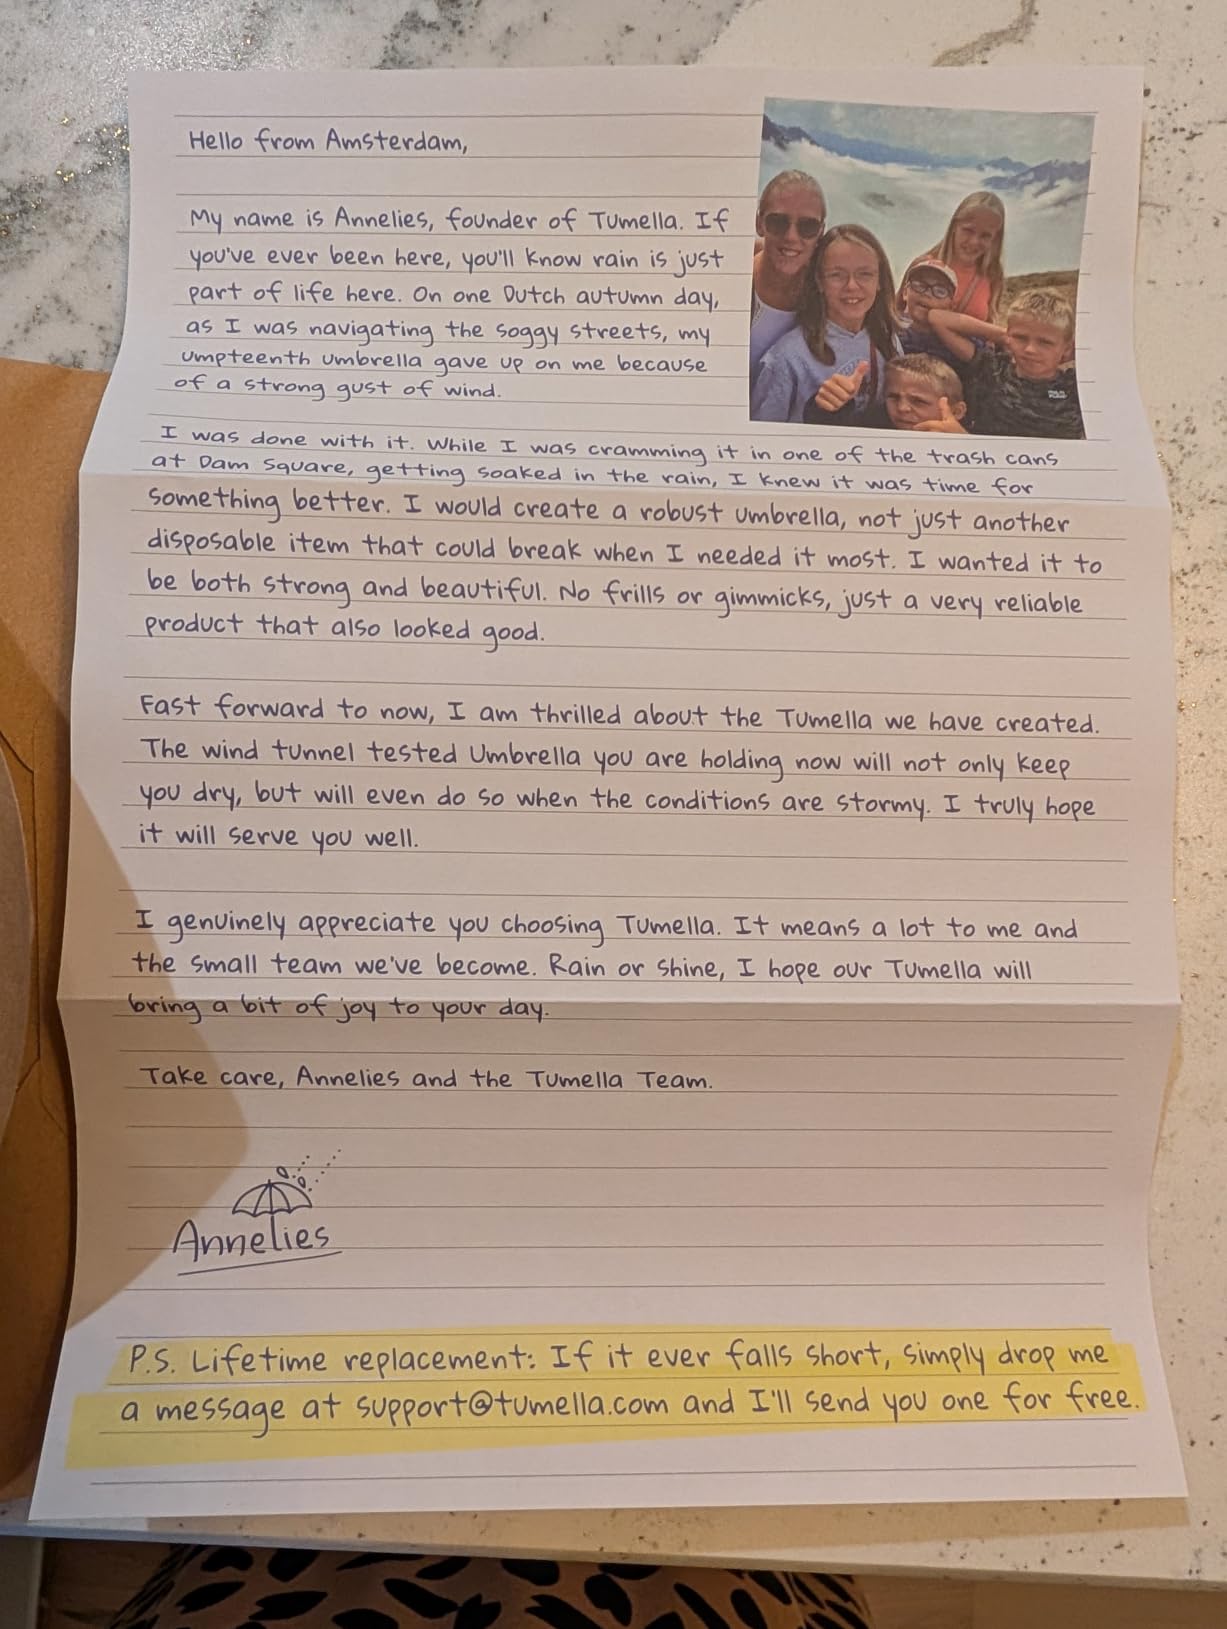 Hello from Amsterdam,
My name is Annelies, founder of Tumella. If
you've ever been here, you'll know rain is just
part of life here. On one Dutch autumn day,
as I was navigating the soggy streets, my
umpteenth umbrella gave up on me because
of a strong gust of wind.
I was done with it. While I was cramming it in one of the trash cans
at Dam Square, getting soaked in the rain, I knew it was time for
something better. I would create a robust umbrella, not just another
disposable item that could break when I needed it most. I wanted it to
be both strong and beautiful. No frills or gimmicks, just a very reliable
product that also looked good.
Fast forward to now, I am thrilled about the Tumella we have created.
The wind tunnel tested Umbrella you are holding now will not only keep
you dry, but will even do so when the conditions are stormy. I truly hope
it will serve you well.
I genuinely appreciate you choosing Tumella. It means a lot to me and
the small team we've become. Rain or shine, I hope our Tumella will
bring a bit of joy to your day.
Take care, Annelies and the Tumella Team.
Annelies
P.S. Lifetime replacement: If it ever falls short, simply drop me
a message at support@tumella.com and I'll send you one for free.